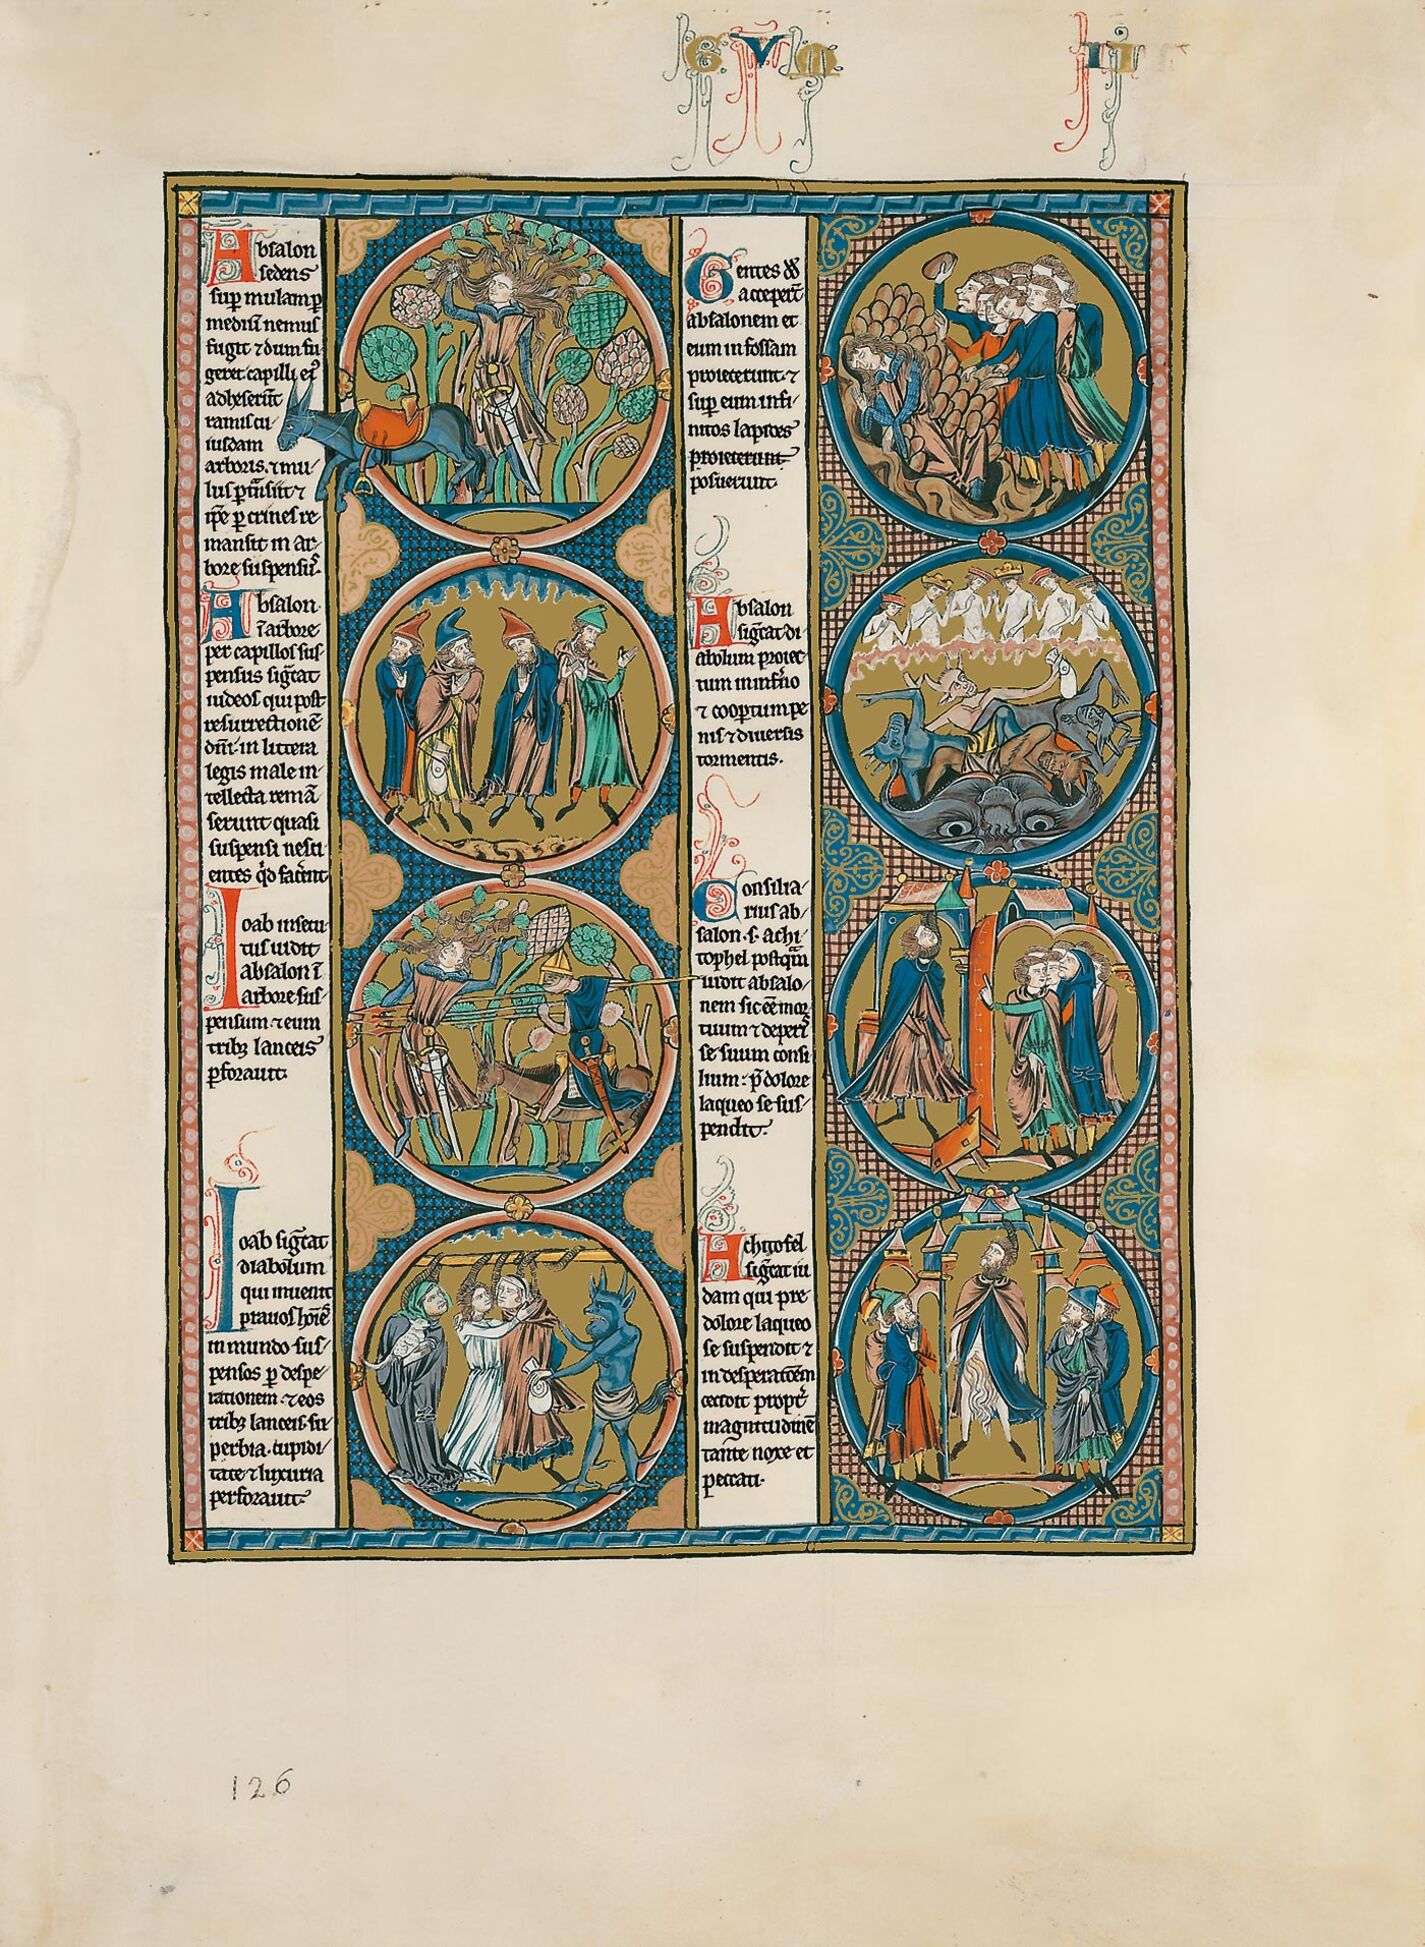 GVM II
Absalon
sedens
sup̄ mulam p̄
mediū nemus
fugit ⁊ dum fu
geret capilli ei⁹
adheserūt
ramis cu
iusdam
arboris. ⁊ mu
lus p̄transiit ⁊
ip̄e p̄ crines re
mansit in ar
bore suspensus.
Absalon
ī arbore
per capillos sus
pensus sigͣt
iudeos qui post
resurrectionē
dn̄i in littera
legis male in
tellecta remā
serunt quasi
suspensi nesci
entes qͥd facerēt
Ioab insecu
tus uidit
absalon ī
arbore sus
pensum ⁊ eum
tribꝫ lanceis
ꝑforauit.
Ioab sigͣt
diabolum
qui inuenit
prauos hoīes
in mundo sus
pensos ꝑ despe
rationem. ⁊ eos
tribꝫ lanceis su
perbia. cupidi
tate ⁊ luxuria
perforauit.
Gentes dd
acceperūt
absalonem et
eum in fossam
proiecerunt. ⁊
sup̄ eum infi
nitos lapides
proiecerunt
posuerunt.
Absalon
sigͣt di
abolum proiec
tum in inf̄no
⁊ coop̄tum pe
nis ⁊ diuersis
tormentis.
Consilia
rius ab
salon .s. achi
tophel postqͣm
uidit absalo
nem sic eē mor
tuum ⁊ deperiſ
se suum consi
lium: p̄ dolore
laqueo se sus
pendit.
Achitofel
sigͣt iu
dam qui pre
dolore laqueo
se suspendit ⁊
in desperatōem
cecidit propt̄
magnitudinē
tante noxe et
peccati.
126